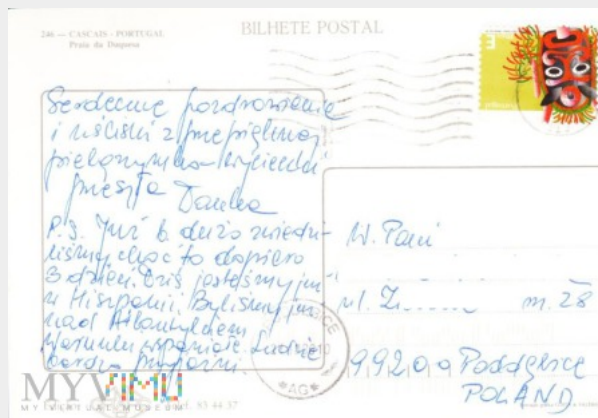 246 — CASCAIS - PORTUGAL
Praia da Duquesa
BILHETE POSTAL
E
Serdeczne pozdrowienia
i uściski z przepięknej
pielgrzymko-wycieczki
przesyła Danka
P.S. Już b. dużo zwiedzi-
liśmy choć to dopiero
3 dzień. Dziś jesteśmy już
w Hiszpanii. Byliśmy
nad Atlantykiem
Warunki wspaniałe Ludzie
bardzo
W. Pani
ul. Z m. 28
99200 Poddębice
POLAND
*AG*
MYVIMU
MY VIRTUAL MUSEUM
83 44 37